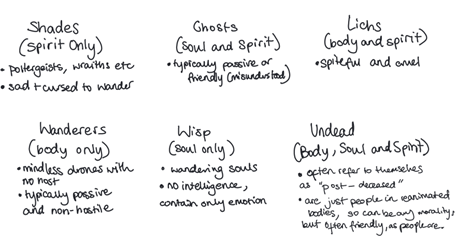 Shades
(spirit only)
• poltergeists, wraiths etc
• sad + cursed to wander
Ghosts
(soul and spirit)
• typically passive or
friendly (misunderstood)
Lichs
(body and spirit)
• spiteful and cruel
Wanderers
(body only)
• mindless drones with
no host
• typically passive
and non-hostile
Wisp
(soul only)
• wandering souls
• no intelligence,
contain only emotion
Undead
(Body, Soul and Spirit)
• often refer to themselves
as "post-deceased"
• are just people in reanimated
bodies, so can be any morality,
but often friendly, as people are.